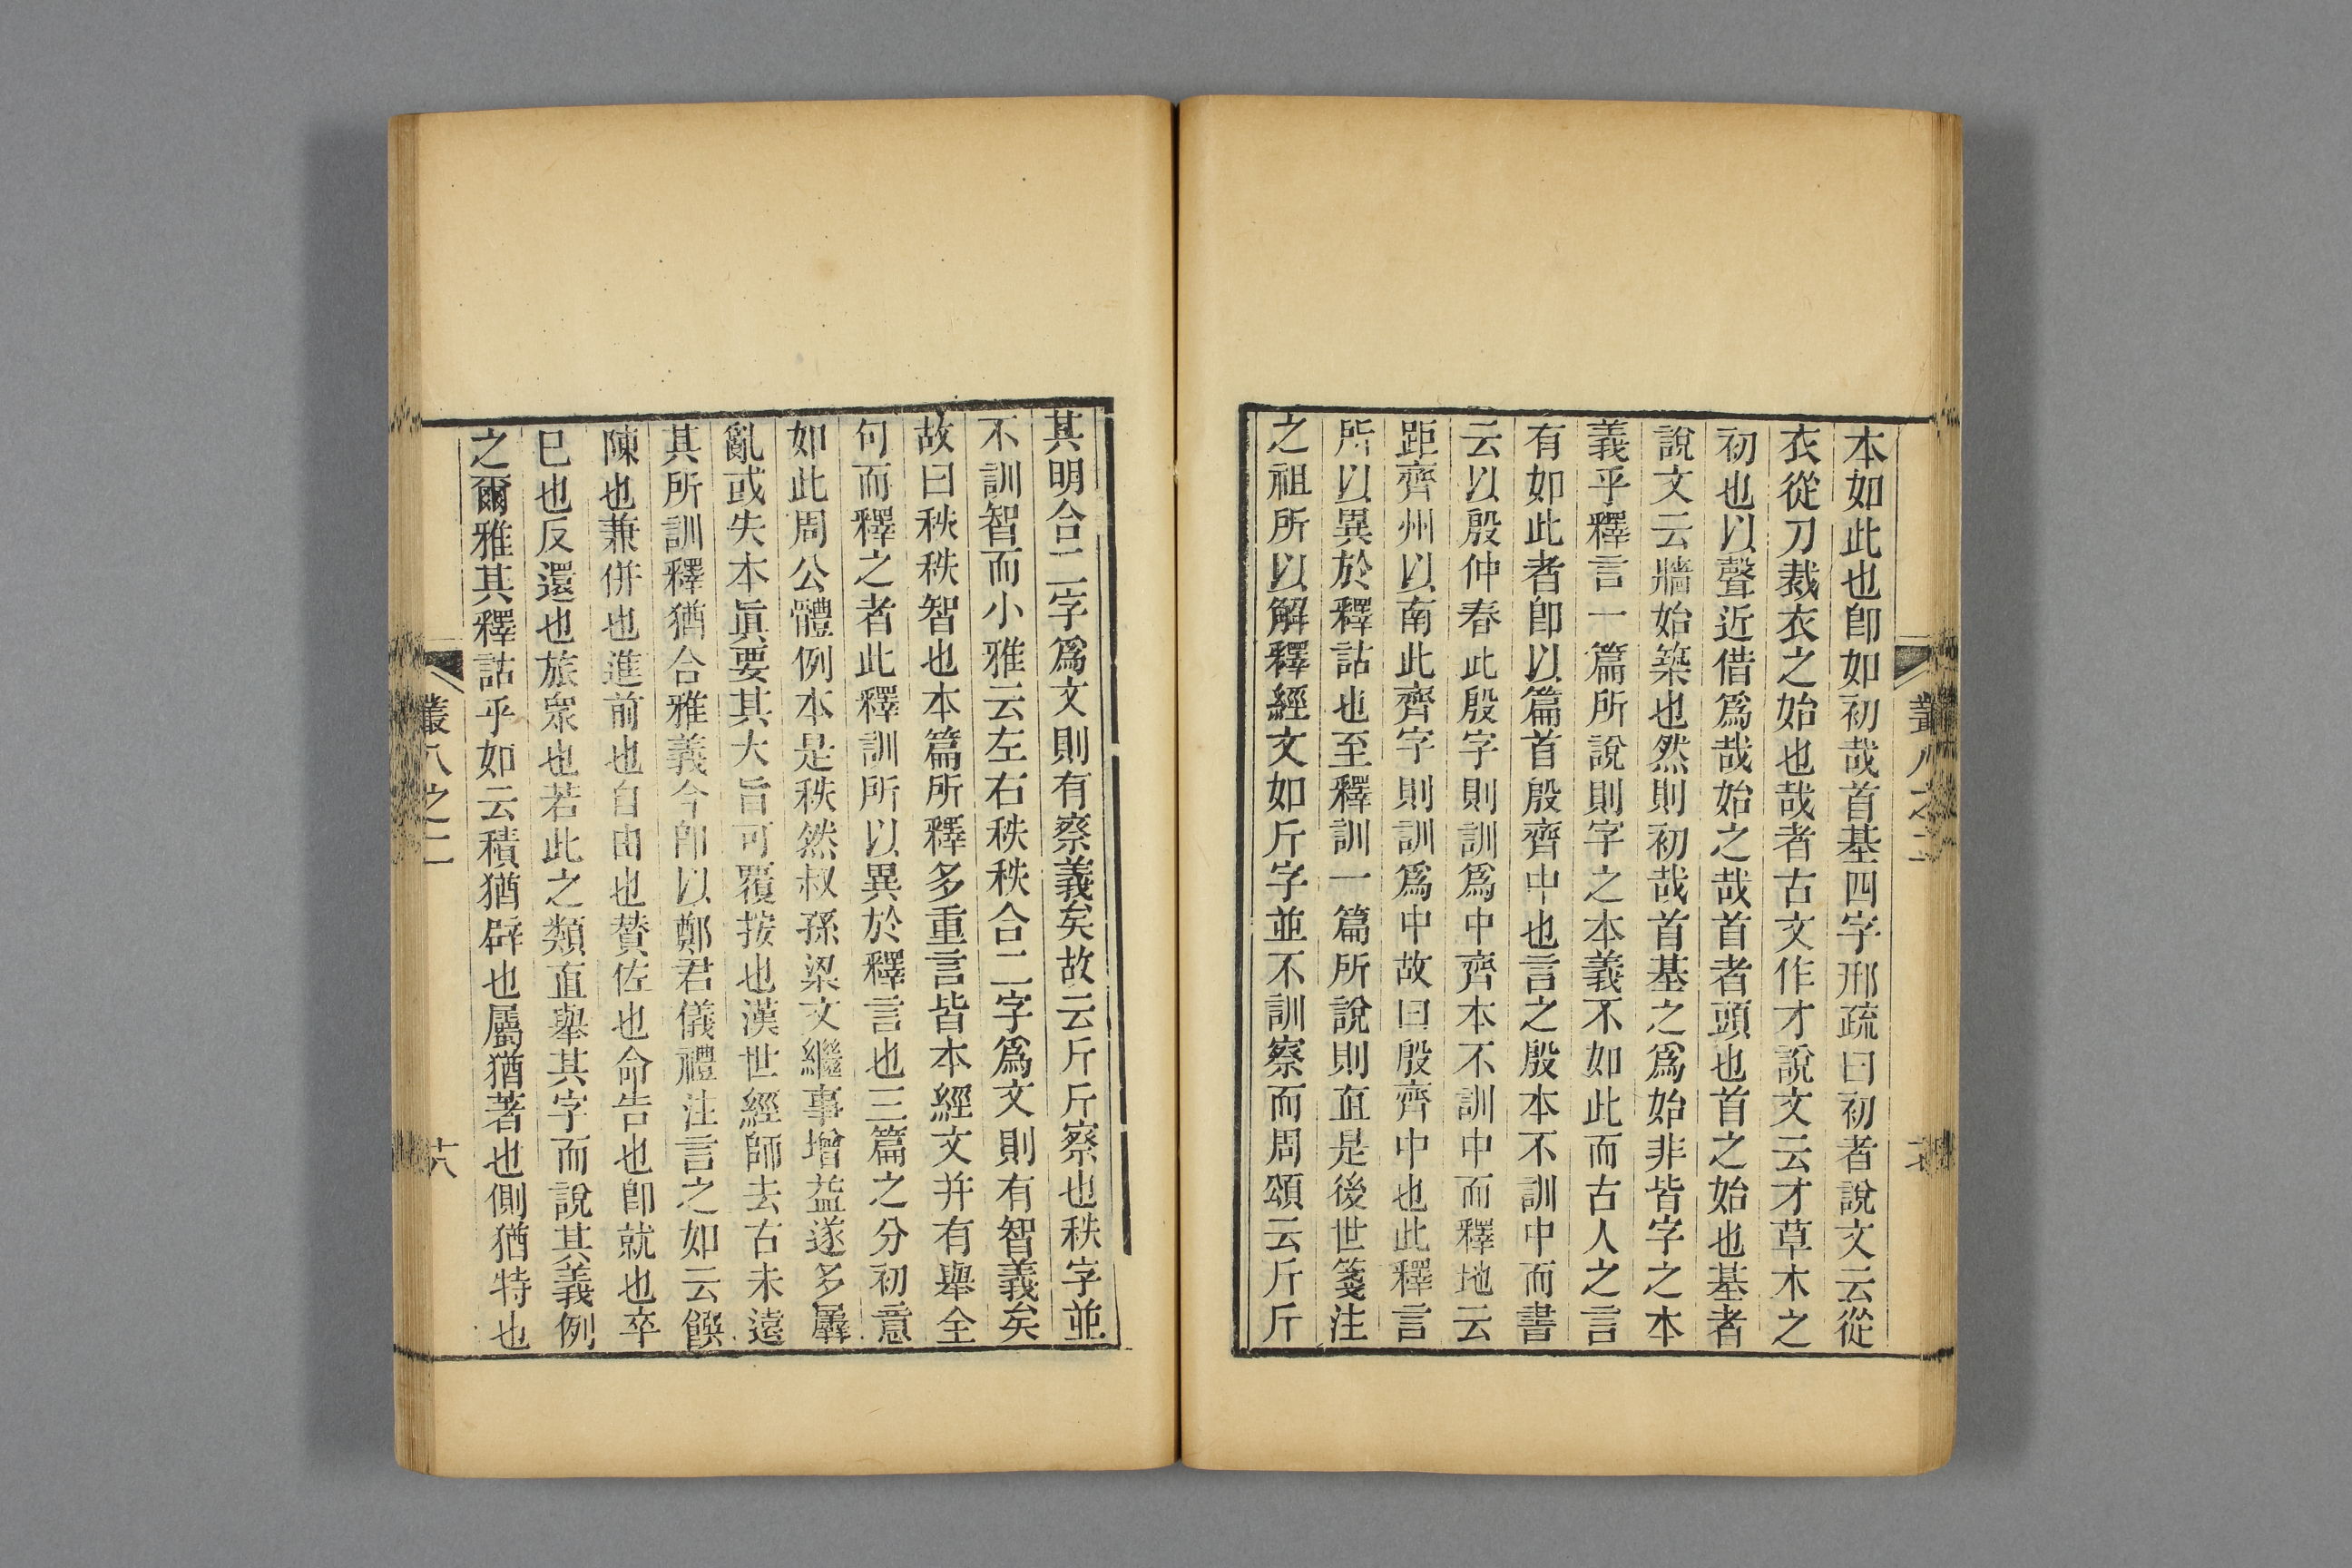 本如此也卽如初哉首基四字邢疏曰初者說文云從
衣從刀裁衣之始也哉者古文作才說文云才草木之
初也以聲近借爲哉始之哉首者頭也首之始也基者
說文云牆始築也然則初哉首基之爲始非皆字之本
義乎釋言一篇所說則字之本義不如此而古人之言
有如此者卽以篇首殷齊中也言之殷本不訓中而書
云以殷仲春此殷字則訓爲中齊本不訓中而釋地云
距齊州以南此齊字則訓爲中故曰殷齊中也此釋言
所以異於釋詁也至釋訓一篇所說則直是後世箋注
之祖所以解釋經文如斤字並不訓察而周頌云斤斤
叢八之二
其明合二字爲文則有察義矣故云斤斤察也秩字並
不訓智而小雅云左右秩秩合二字爲文則有智義矣
故曰秩秩智也本篇所釋多重言皆本經文并有舉全
句而釋之者此釋訓所以異於釋言也三篇之分初意
如此周公體例本是秩然叔孫梁文繼事增益遂多羼
亂或失本眞要其大旨可覆按也漢世經師去古未遠
其所訓釋猶合雅義今卽以鄭君儀禮注言之如云饌
陳也兼併也進前也自由也贊佐也命告也卽就也卒
已也反還也旅眾也若此之類直舉其字而說其義例
之爾雅其釋詁乎如云積猶辟也屬猶著也側猶特也
叢八之二
十八